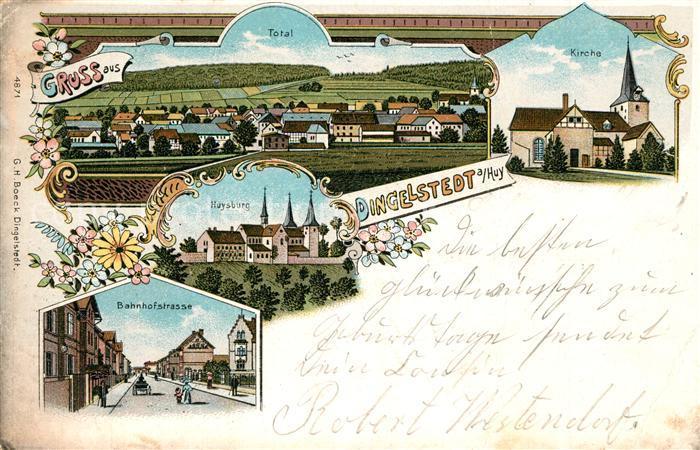 Total
Kirche
GRUSS aus
DINGELSTEDT a/Huy
Huysburg
Bahnhofstrasse
4871
G. H. Boeck, Dingelstedt.
Die besten
glückwünsche zum
Geburtstage sendet
Dein Cousin
Robert Westendorf.